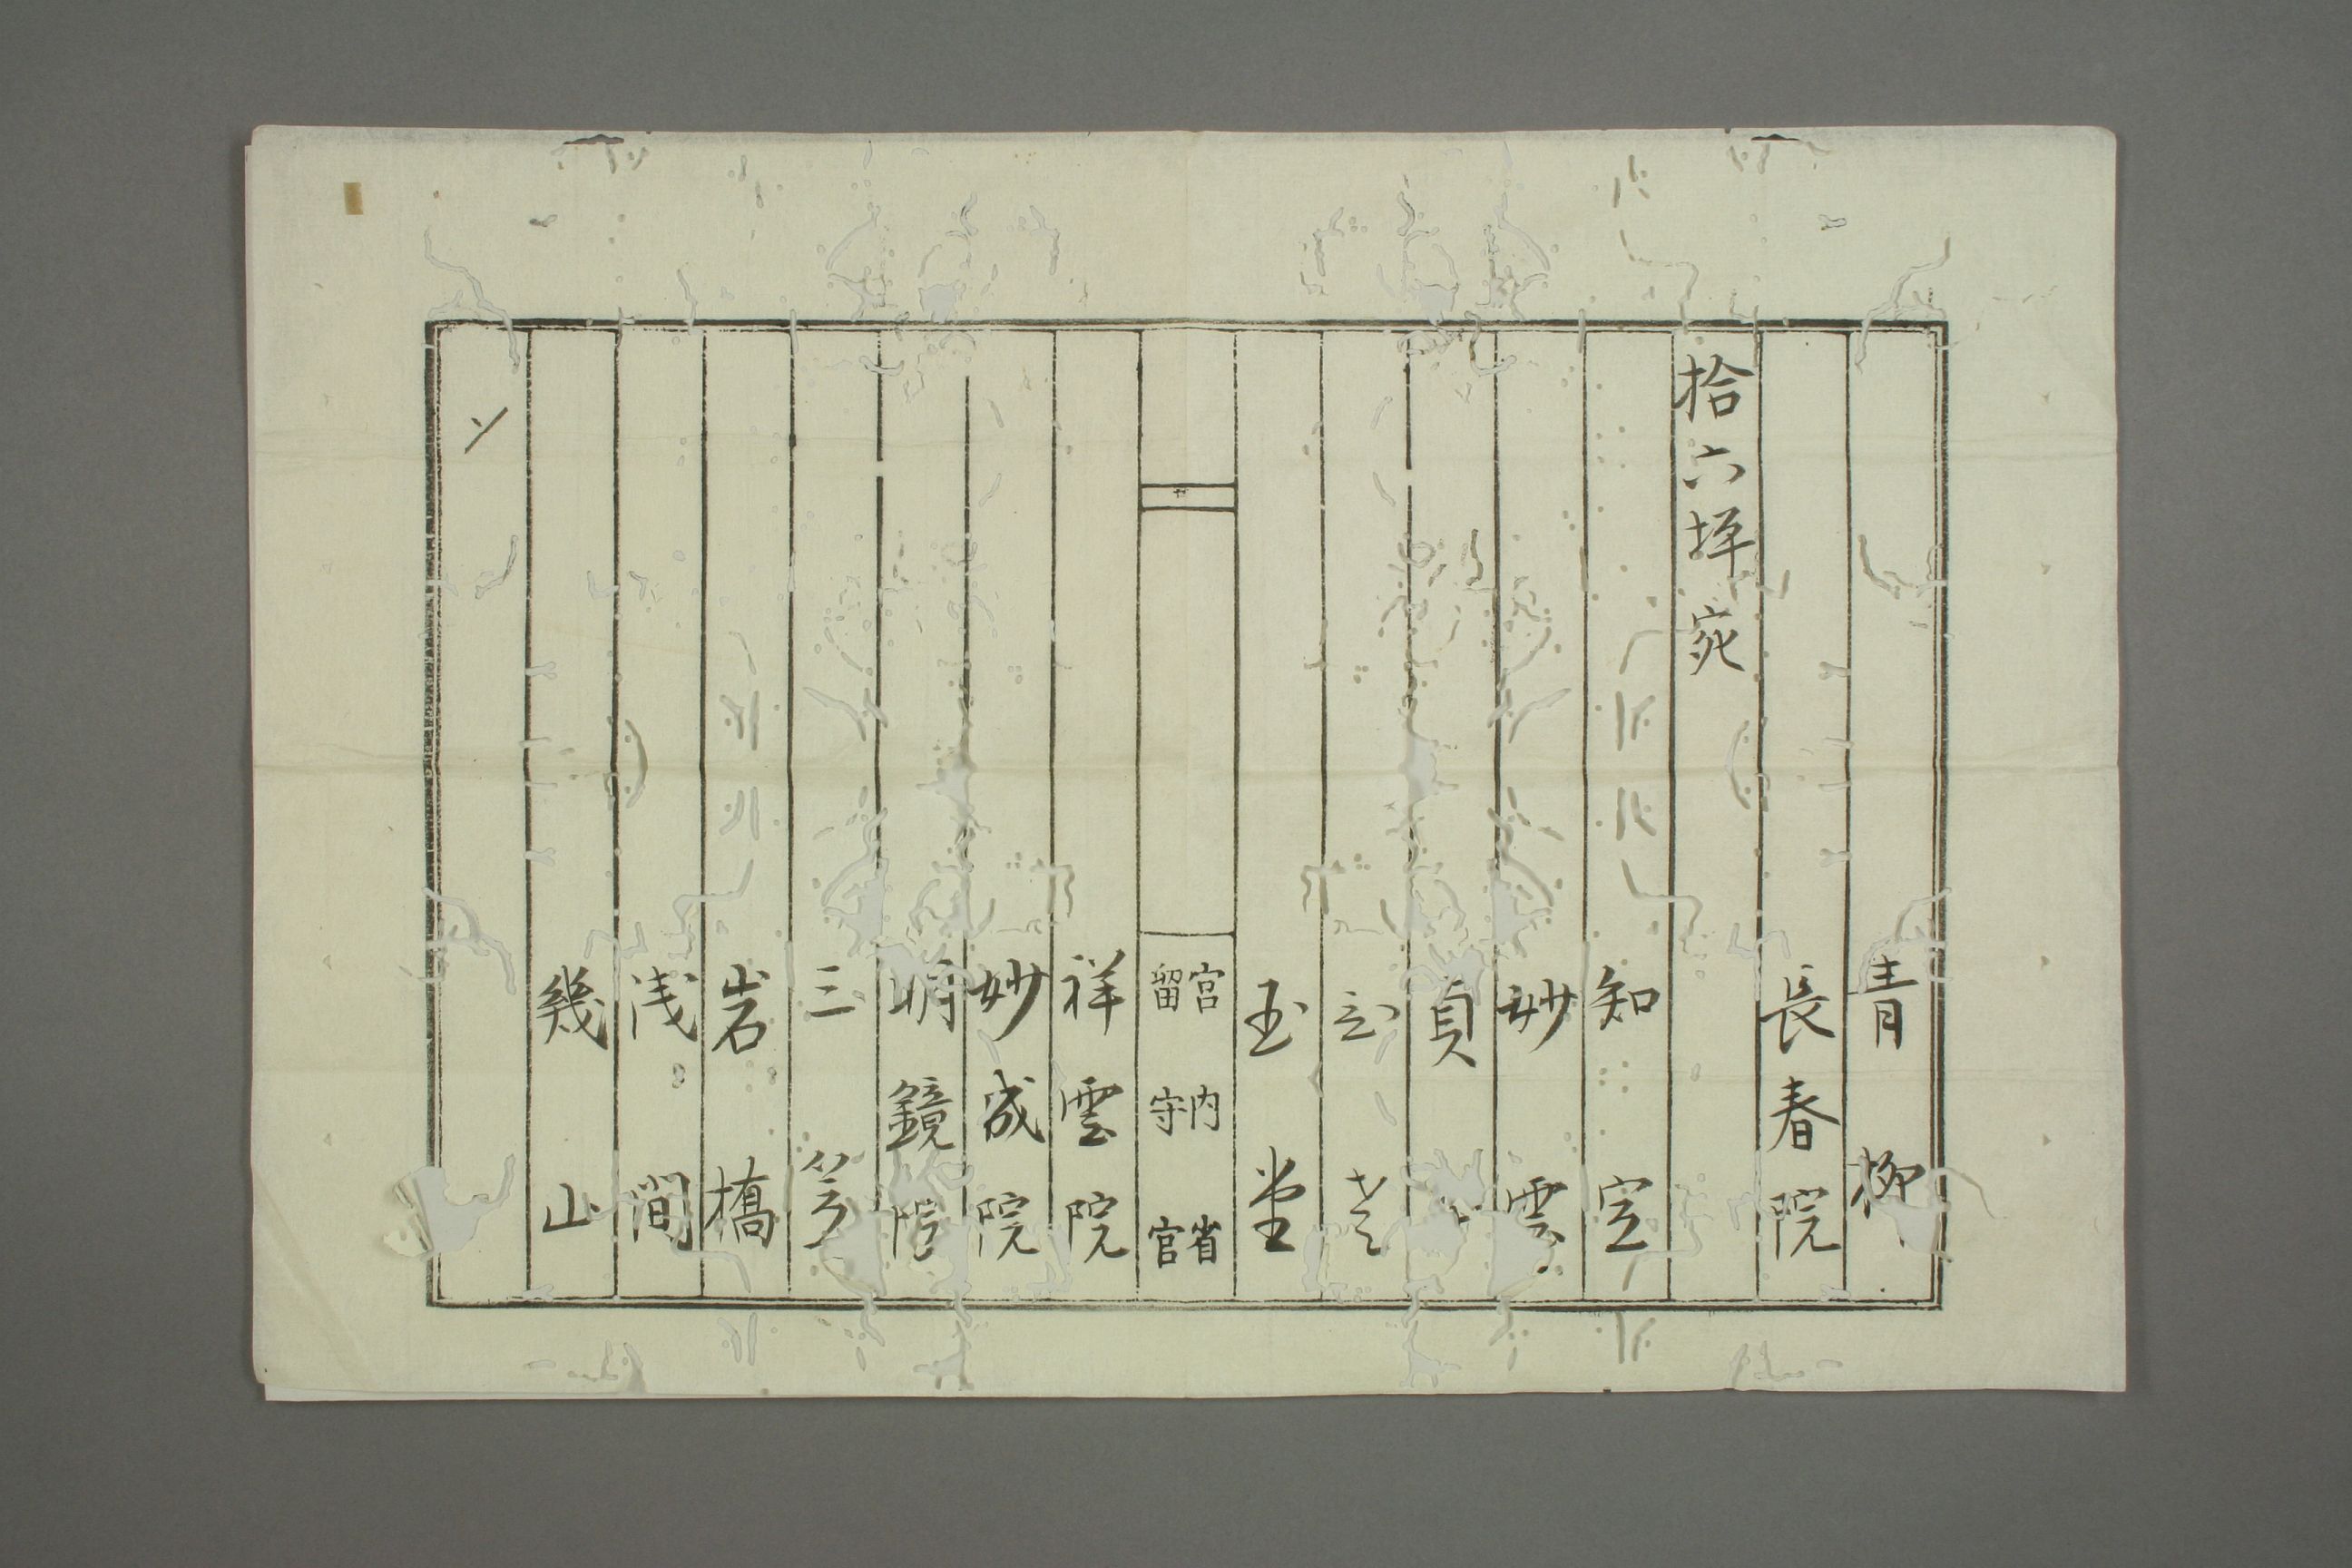 青柳
長春院
拾六坪宛
知定
妙雲
貞
玉堂
宮内省
留守官
祥雲院
妙成院
明鏡院
三
岩橋
浅間
幾山